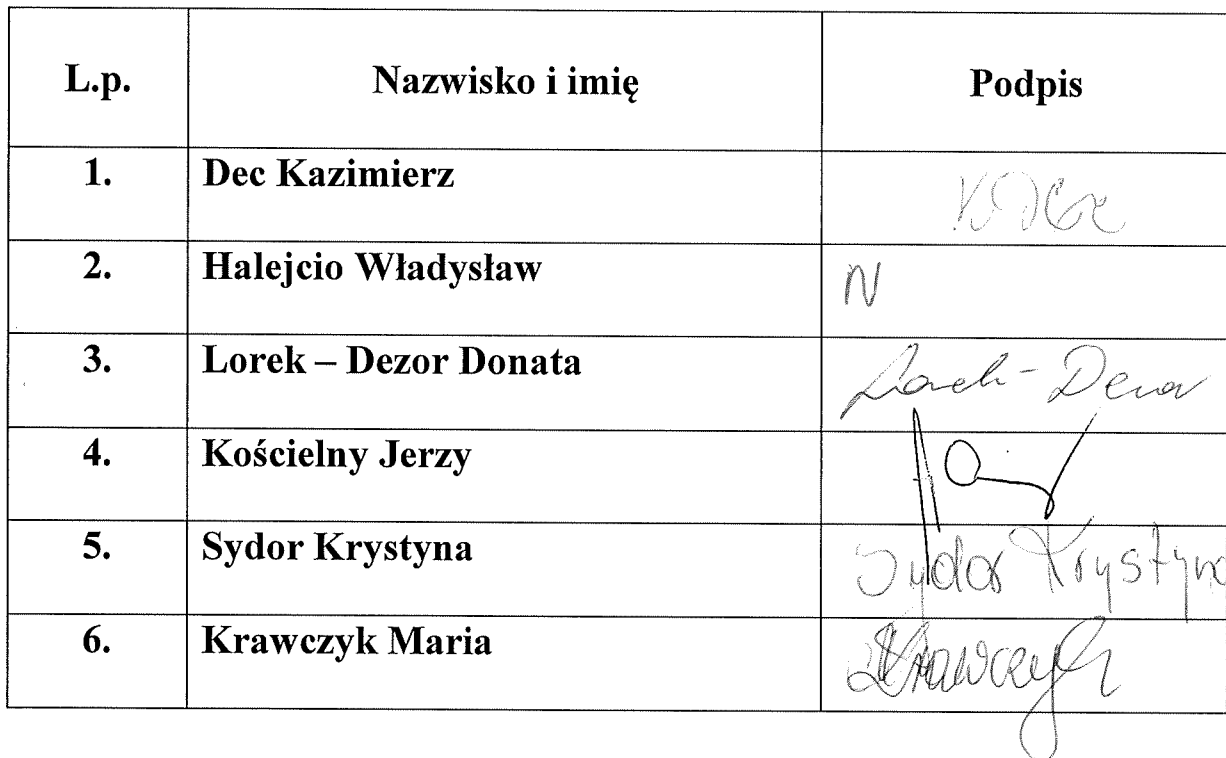 L.p. Nazwisko i imię Podpis
1. Dec Kazimierz
2. Halejcio Władysław N
3. Lorek – Dezor Donata
4. Kościelny Jerzy
5. Sydor Krystyna Sydor Krystyna
6. Krawczyk Maria Krawczyk